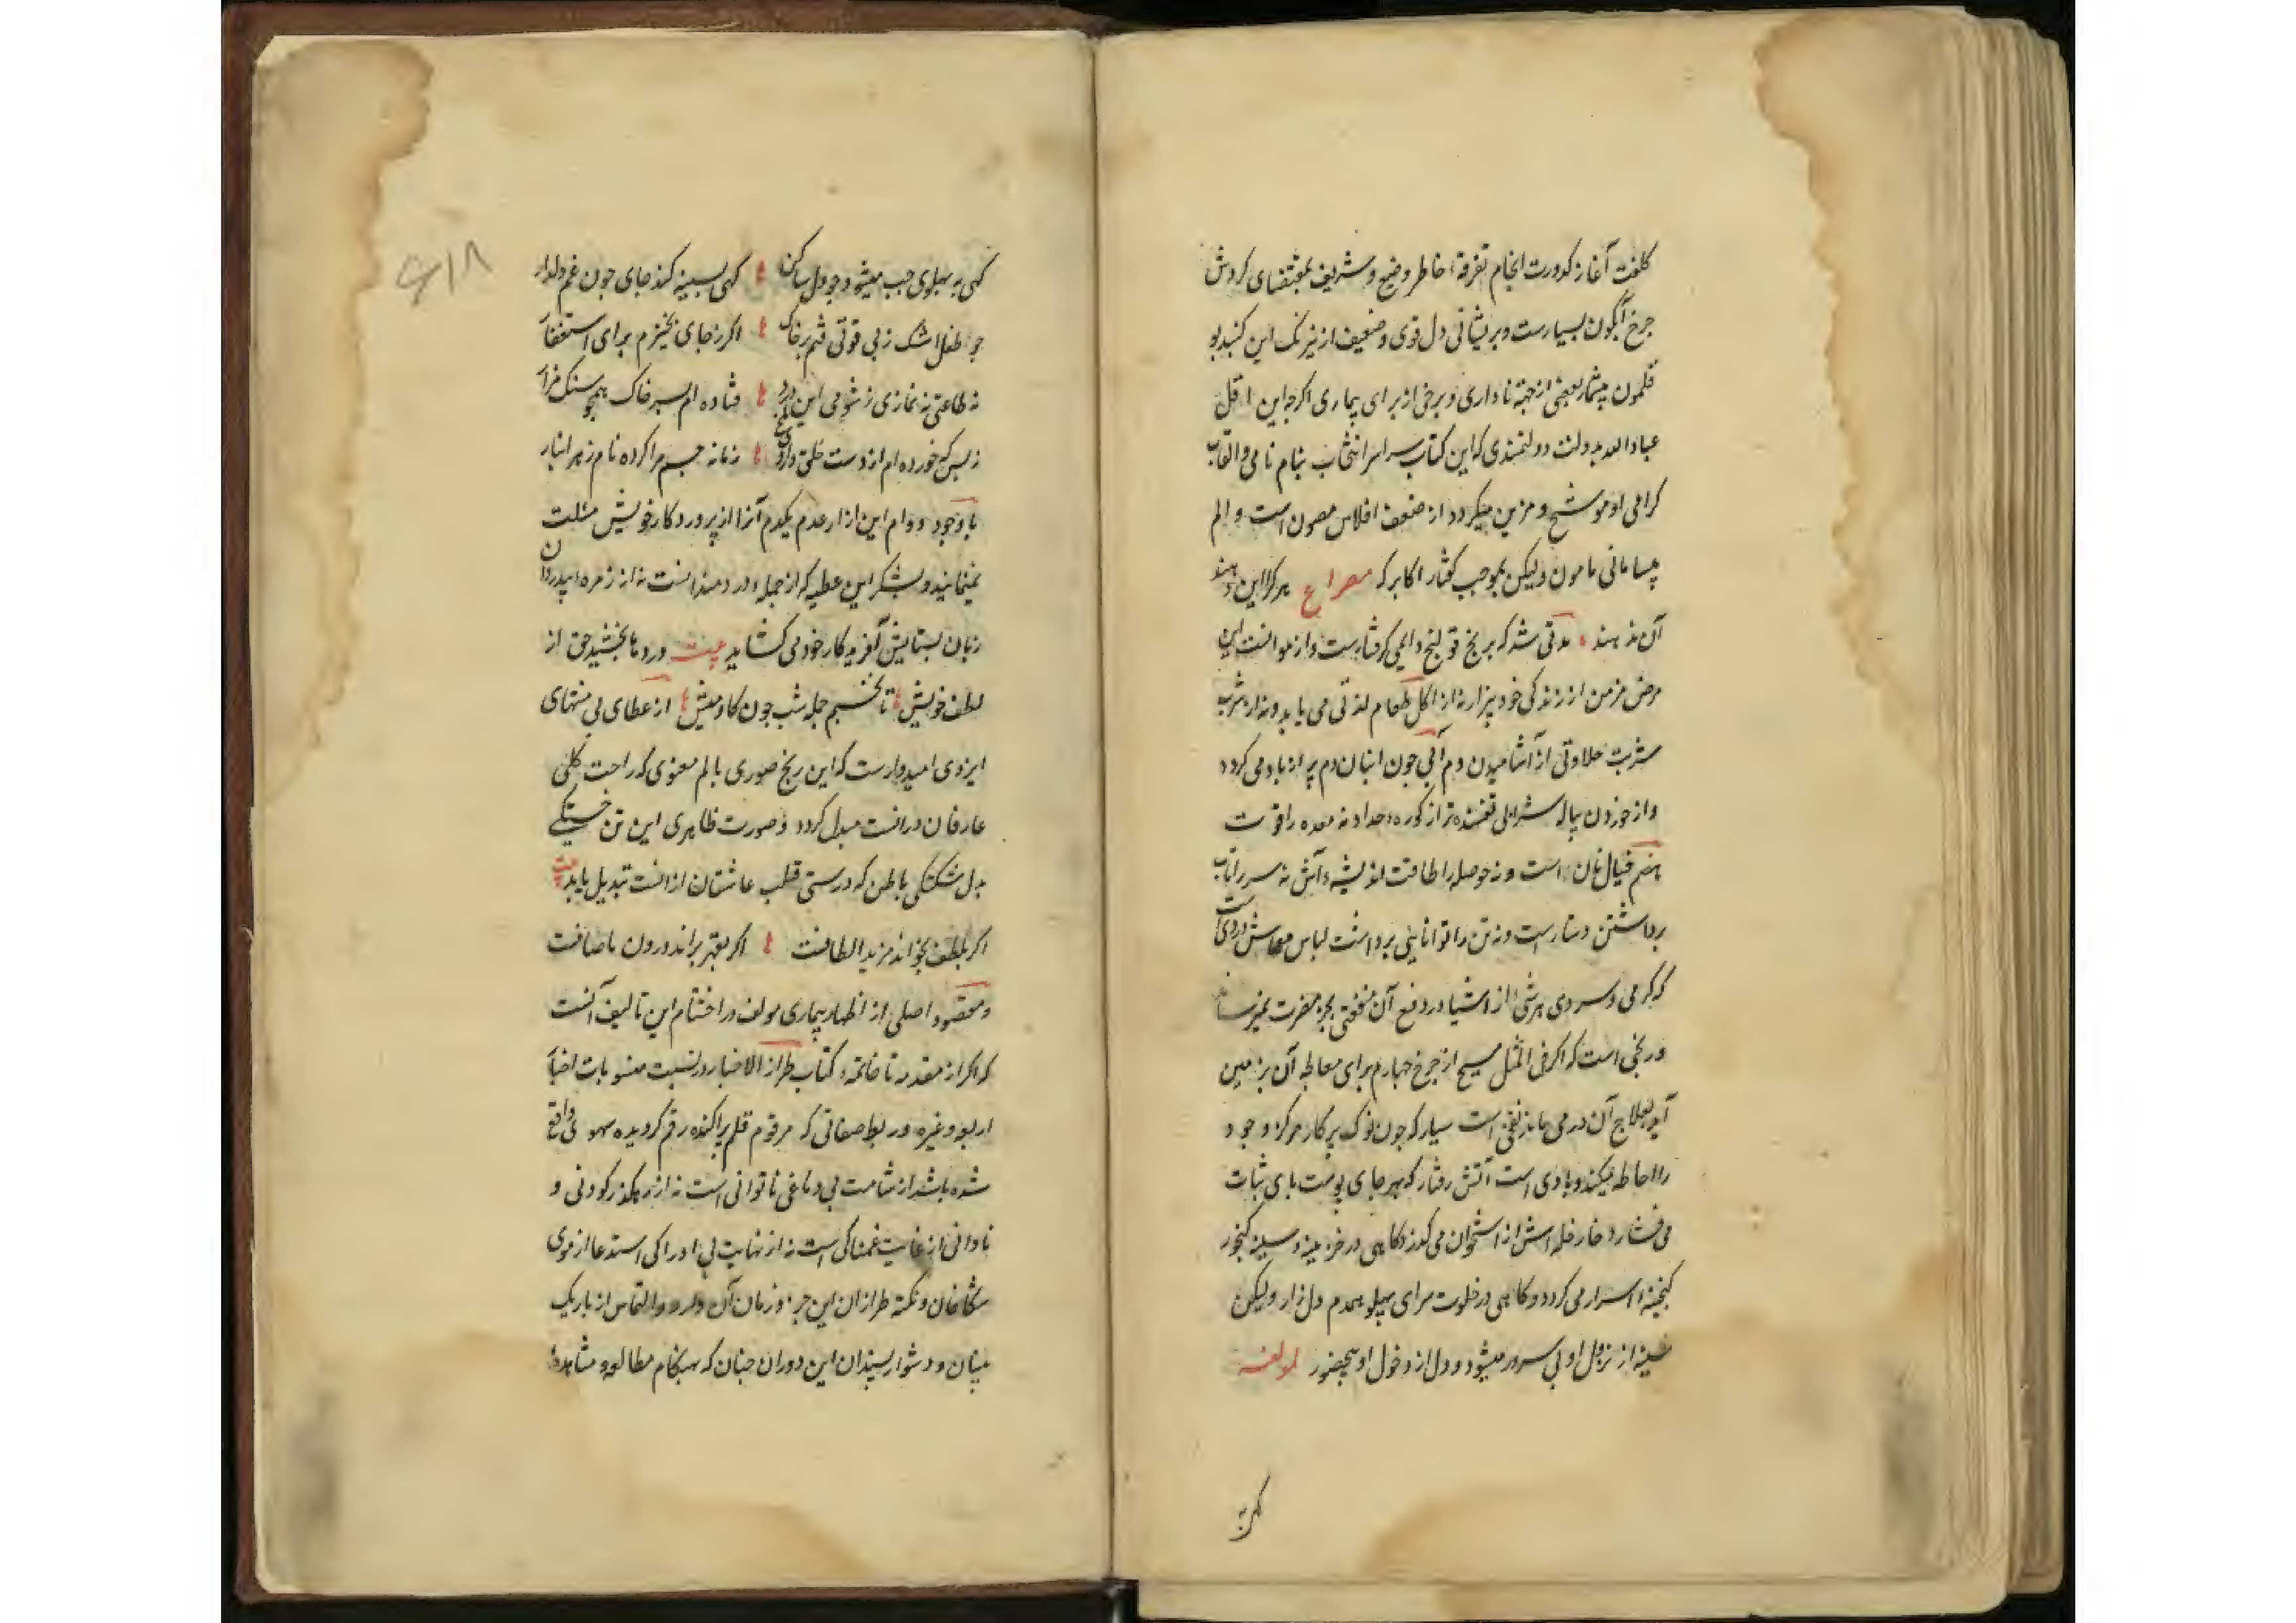 کلفت آغاز کدورت انجام تفرقهٔ خاطر وضیع و شریف بمقتضای کردش
جرخ آبگون بسیارست و پریشانی دل قوی و ضعیف از نیرنک این کنبد بو
قلمون بیشمار بعضی از جهة ناداری و برخی از برای بیماری اکرچه این اقل
عباد الله بدولت دولتمندی که این کتاب سراسر انتخاب بنام نامی و القاب
کرامی او موشح و مزین میکردد از ضعف افلاس مصون است و الم
بیسامانی مامون و لیکن بموجب کفتار اکابر که مصراع هر کرا این دهند
آن ندهند مدتی شد که برنج قولنج دایمی کرفتارست و از موانست این
مرض مزمن از زندکی خود بیزار نه از اکل طعام لذتی می یابد و نه از شرب
شربت حلاوتی از آشامیدن دم آبی جون انبان دم پر از باد می کردد
و از خوردن پیاله شرابی تفسنده تر از کوره حداد نه معده را قوت
هضم خیال نان است و نه حوصله را طاقت اندیشه آش نه سر را تاب
برداشتن دستارست و نه تن را توانایی برداشت لباس معاش دردی
که کرمی و سردی هر شی از اشیا در دفع آن منفعتی بجز مضرت نمیرساند
و رنجی است که اکر فی المثل مسیح از جرخ جهارم برای معالجه آن بزمین
آید بعلاج آن در می ماند نفخی است سیار که جون نوک پرکار مرکز وجود
را احاطه میکند و بادی است آتش رفتار که بهر جای پوست پای ثبات
می فشارد خار خله اش از استخوان می کذرد کاهی در خزینه سینه کنجور
کنجینه اسرار می کردد و کاهی در خلوت سرای پهلو همدم دل زار و لیکن
سینه از نزول او بی سرور میشود و دل از دخول او بیحضور لمولفه
کهی به
کهی به پهلوی جب میشود جو دل ساکن کهی بسینه کند جای جون غم دلدار
جو طفل اشک ز بی قوتی فتم بر خاک اکر ز جای بخیزم برای استغفار
نه طاعتی نه نمازی ز شومی این درد فتاده ام بسر خاک همجو سنک مزار
ز بس که خورده ام از دست خلق داروی تلخ زمانه جسم مرا کرده نام زهر انبار
با وجود دوام این ازار عدم یکدم آنرا از پروردکار خویش مسئلت
نمینمایند و بشکر این عطیه که از جمله دردمندانست نه از زمره بیدردان
زبان بستایش آفریدکار خود می کشاید بیت درد ما بخشید حق از
لطف خویش تا نخسبم جمله شب جون کاومیش از عطای بی منتهای
ایزدی امیدوارست که این رنج صوری بالم معنوی که راحت کلی
عارفان در انست مبدل کردد و صورت ظاهری این تن خستکی
بدل شکستکی باطن که درستی قلب عاشقان ازانست تبدیل یابد بیت
اکر بلطف بخواند مزید الطافست اکر بقهر براند درون ما صافست
و مقصود اصلی از اظهار بیماری مولف در اختتام این تالیف آنست
که اکر از مقدمه تا خاتمه کتاب طراز الاخبار در نسبت منسوبات اخبار
اربعه و غیره در ربط صفاتی که مرقوم قلم پراکنده رقم کردیده سهوی واقع
شده باشد از شامت بی دماغی ناتوانی است نه از رهکذر کودنی و
نادانی از غایت غمناکی است نه از نهایت بی ادراکی استدعا از موی
شکافان و نکته طرازان این جزو زمان آن دارد و التماس از باریک
بینان و دشوار پسندان این دوران جنان که بهنکام مطالعه و مشاهده
۶۱۸